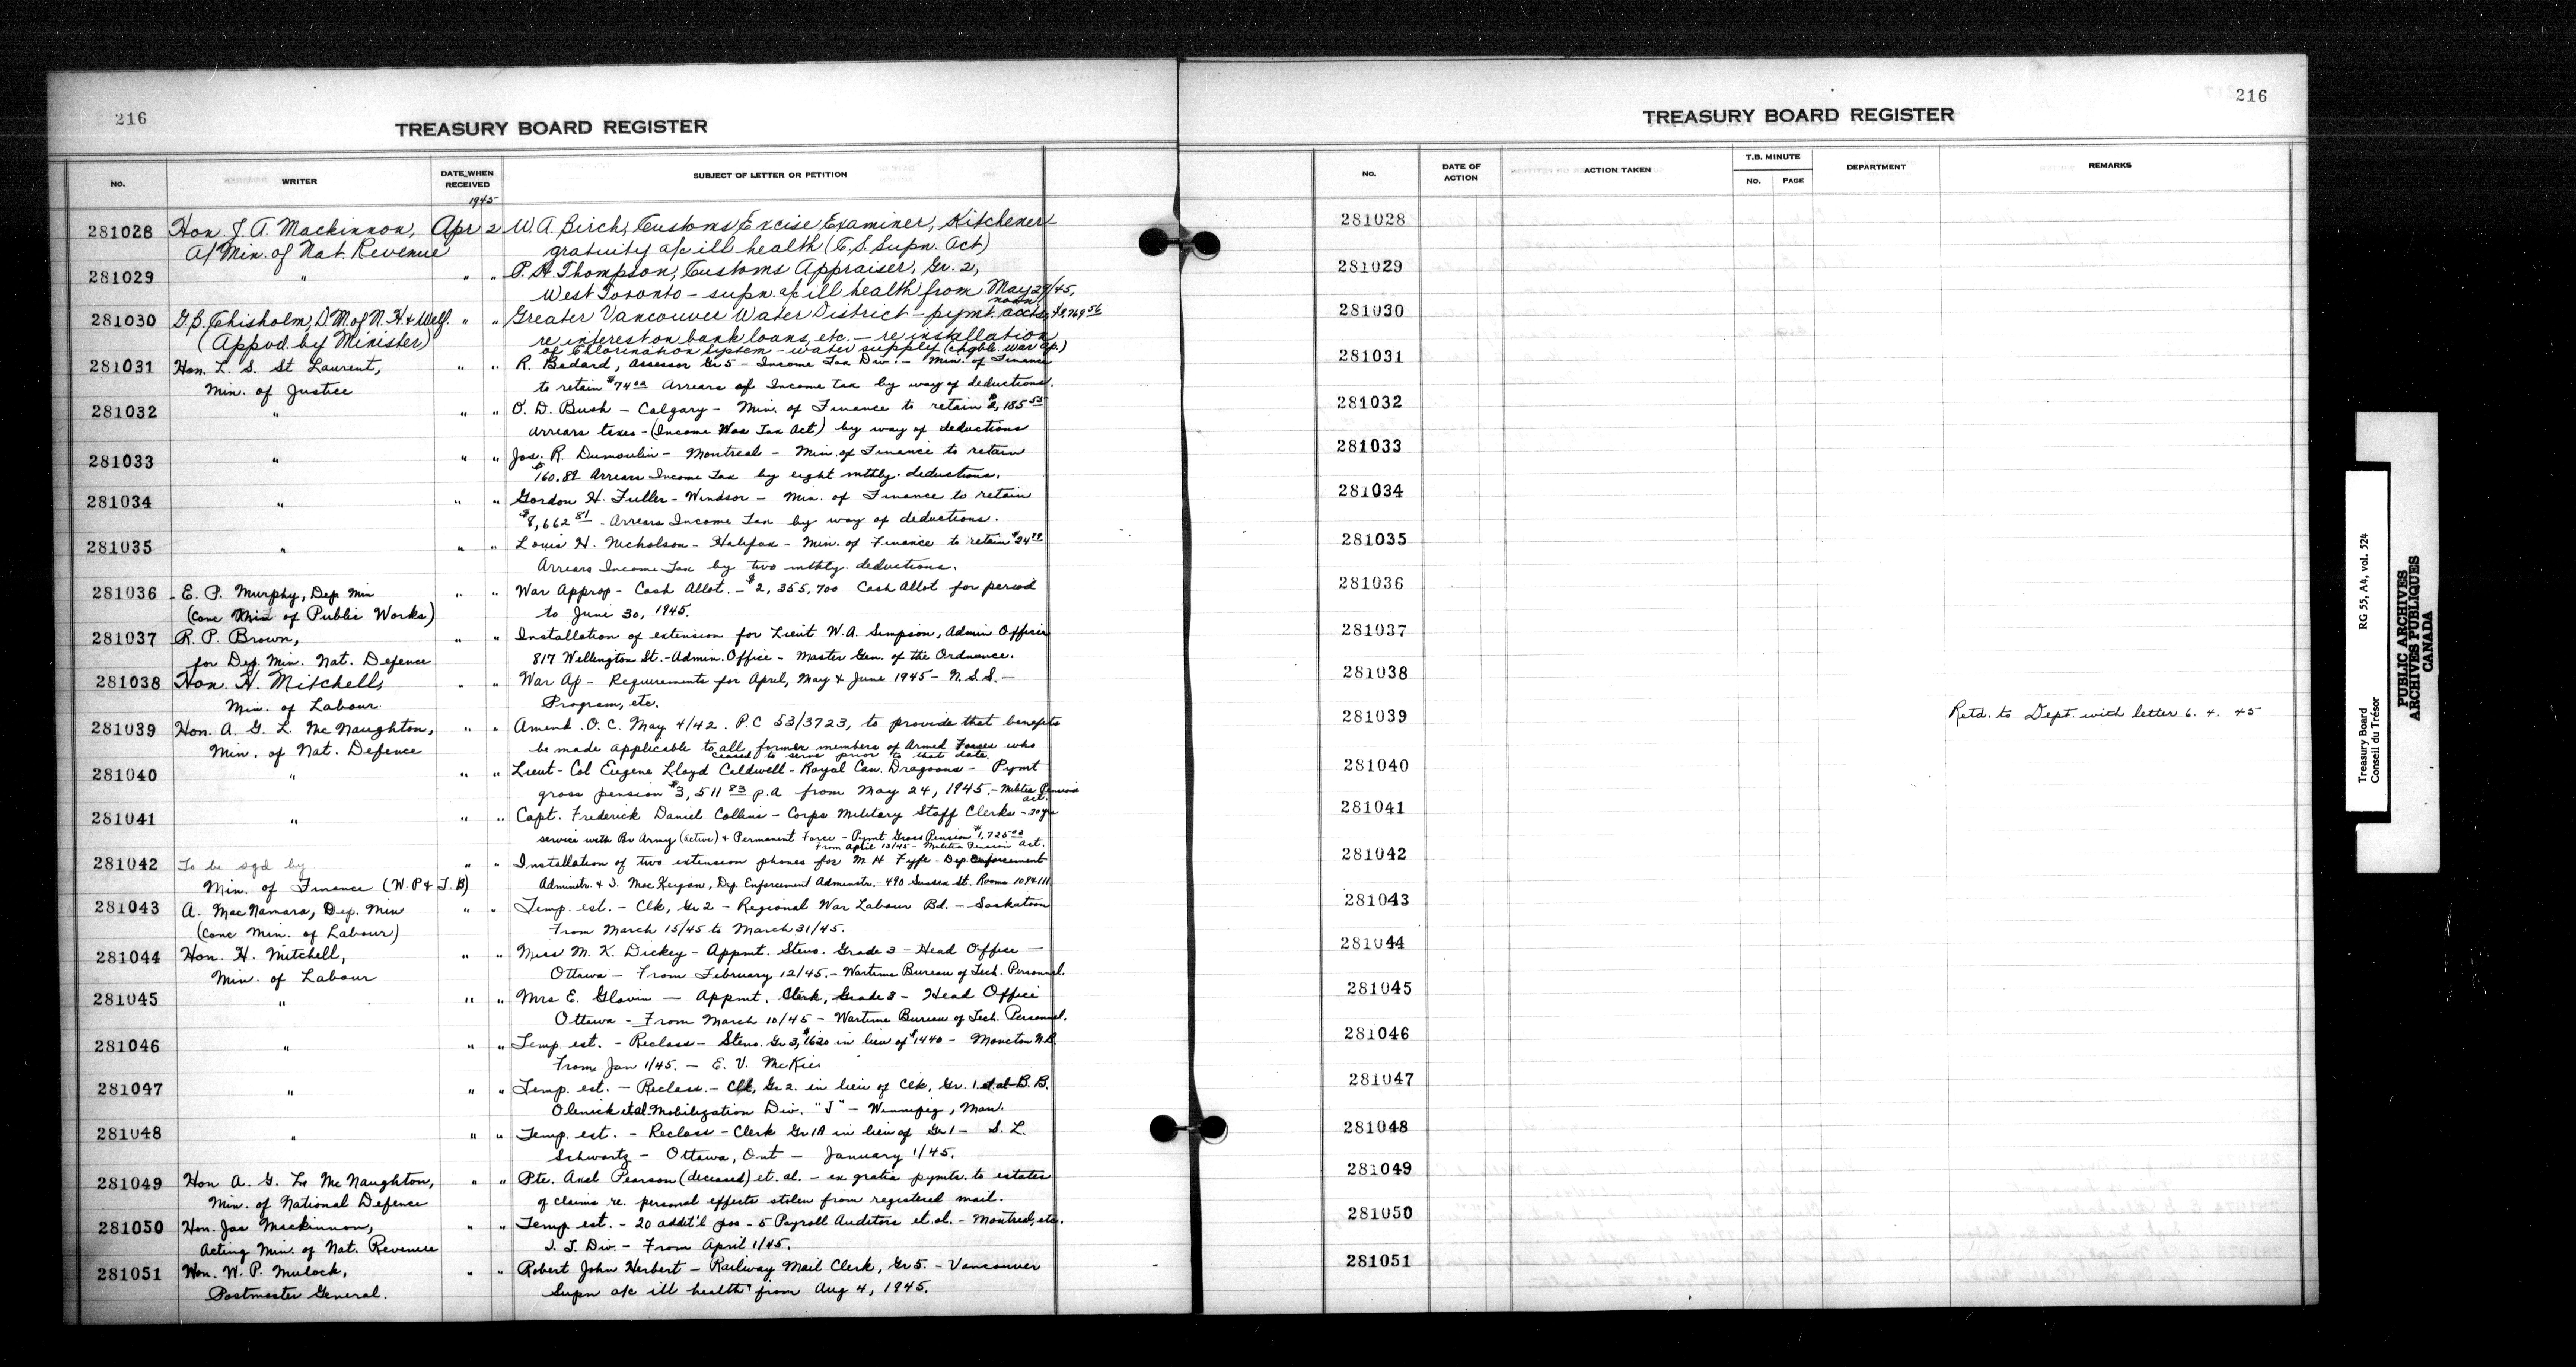 216
TREASURY BOARD REGISTER
No.
WRITER
DATE WHEN RECEIVED
SUBJECT OF LETTER OR PETITION
1945
281028 Hon. J. A. Mackinnon, Apr 2 W. A. Birch, Customs Excise Examiner, Kitchener-
A/ Min. of Nat. Revenue gratuity a/c ill health (C. S. Supn. Act)
281029 " " " P. H. Thompson, Customs Appraiser, Gr. 2,
West Toronto - supn. a/c ill health from May 29/45,
noon
281030 G. B. Chisholm, D.M. of N. H. & Welf. " " Greater Vancouver Water District - pymt. accts, $9769 56
(Appvd. by Minister) re interest on bank loans, etc. - re installation
of chlorination system - water supply (chgble. war ap.)
281031 Hon. L. S. St Laurent, " " R. Bedard, Assessor Gr 5 - Income Tax Div. - Min. of Finance
Min. of Justice to retain $74 02 Arrears of Income tax by way of deductions.
281032 " " " O. D. Bush - Calgary - Min. of Finance to retain $2,185 55
arrears taxes - (Income War Tax Act) by way of deductions
281033 " " " Jos. R. Dumoulin - Montreal - Min. of Finance to retain
$160.89 Arrears Income Tax by eight mthly. deductions.
281034 " " " Gordon H. Fuller - Windsor - Min. of Finance to retain
$8,662 81 - Arrears Income Tax by way of deductions.
281035 " " " Louis H. Nicholson - Halifax - Min. of Finance to retain $24
Arrears Income Tax by two mthly. deductions.
281036 E. P. Murphy, Dep Min " " War Approp - Cash Allot. - $2,355,700 Cash Allot for period
(conc Min of Public Works) to June 30, 1945.
281037 R. P. Brown, " " Installation of extension for Lieut W. A. Simpson, Admin Officer
for Dep. Min. Nat. Defence 817 Wellington St. - Admin. Office - Master Gen. of the Ordnance.
281038 Hon. H. Mitchell, " " War Ap - Requirements for April, May & June 1945 - N. S. S. -
Min. of Labour. Program, etc.
281039 Hon. A. G. L. McNaughton, " " Amend. O. C. May 4/42. P.C 53/3723, to provide that benefits
Min. of Nat. Defence be made applicable to all former members of Armed Forces who
ceased to serve prior to that date.
281040 " " " Lieut-Col Eugene Lloyd Caldwell - Royal Can. Dragoons - Pymt
gross pension $3,511 83 p.a from May 24, 1945. - Militia Pension
act.
281041 " " " Capt. Frederick Daniel Collins - Corps Military Staff Clerks - 30 yrs
service with Br Army (active) & Permanent Force - Pymt Gross Pension $1,725
from April 13/45 - Militia Pension act.
281042 To be sgd by " " Installation of two extension phones for M. H Fyfe - Dep. Enforcement
Min. of Finance (W. P & T. B) Adminstr. & J. MacKeigan, Dep. Enforcement Adminstr. - 490 Sussex St. Rooms 109 & 111.
281043 A. MacNamara, Dep. Min " " Temp. est. - Clk, Gr 2 - Regional War Labour Bd. - Saskatoon
(conc Min. of Labour) From March 15/45 to March 31/45.
281044 Hon. H. Mitchell, " " Miss M. K. Dickey - Appmt. Steno. Grade 3 - Head Office -
Min. of Labour Ottawa - From February 12/45. - Wartime Bureau of Tech. Personnel.
281045 " " " Mrs E. Glavin - Appmt. Clerk, Grade 3 - Head Office
Ottawa - From March 10/45 - Wartime Bureau of Tech. Personnel.
281046 " " " Temp est. - Reclass - Steno. Gr 3, $1620 in lieu of $1440 - Moncton N.B.
From Jan 1/45. - E. V. McKie
281047 " " " Temp. est. - Reclass. - Clk, Gr 2. in lieu of Clk, Gr. 1. et al B. B.
Olenick et al. Mobilization Div. "J" - Winnipeg, Man.
281048 " " " Temp. est. - Reclass - Clerk Gr 1A in lieu of Gr 1 - S. L.
Schwartz - Ottawa, Ont - January 1/45.
281049 Hon A. G. L. McNaughton, " " Pte. Axel Pearson (deceased) et. al. - ex gratia pymts. to estates
Min. of National Defence of claims re. personal effects stolen from registered mail.
281050 Hon. Jas Mackinnon, " " Temp est. - 20 addit'l pos - 5 Payroll Auditors et. al. - Montreal, etc.
Acting Min. of Nat. Revenue I. T. Div. - From April 1/45.
281051 Hon. W. P. Mulock, " " Robert John Herbert - Railway Mail Clerk, Gr 5. - Vancouver
Postmaster General. Supn a/c ill health from Aug 4, 1945.
216
TREASURY BOARD REGISTER
No.
DATE OF ACTION
ACTION TAKEN
T.B. MINUTE
No. PAGE
DEPARTMENT
REMARKS
281028
281029
281030
281031
281032
281033
281034
281035
281036
281037
281038
281039 Retd. to Dept. with letter 6. 4. 45
281040
281041
281042
281043
281044
281045
281046
281047
281048
281049
281050
281051
Treasury Board RG 55, A4, vol. 524
Conseil du Trésor
PUBLIC ARCHIVES
ARCHIVES PUBLIQUES
CANADA